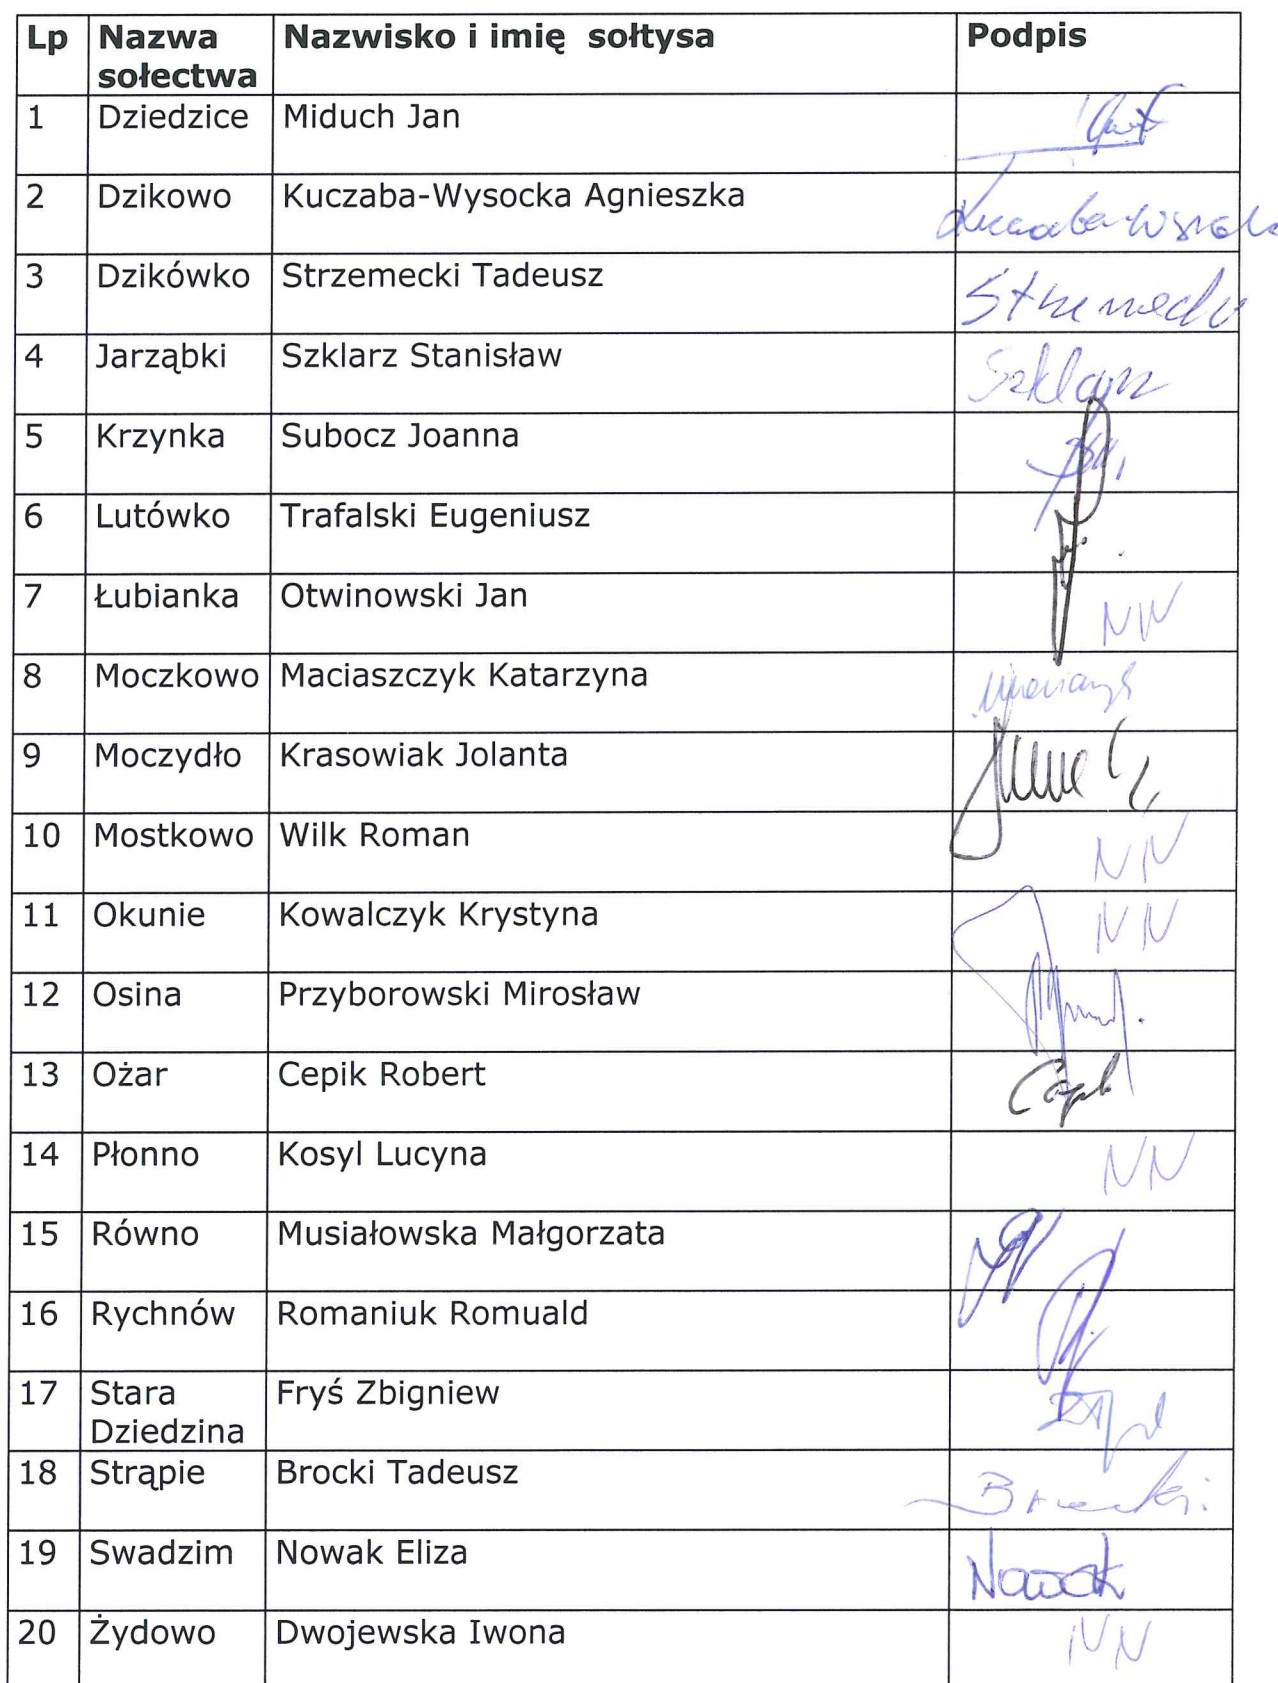 Lp Nazwa sołectwa Nazwisko i imię sołtysa Podpis
1 Dziedzice Miduch Jan
2 Dzikowo Kuczaba-Wysocka Agnieszka
3 Dzikówko Strzemecki Tadeusz Strzemecki
4 Jarząbki Szklarz Stanisław Szklarz
5 Krzynka Subocz Joanna
6 Lutówko Trafalski Eugeniusz
7 Łubianka Otwinowski Jan NN
8 Moczkowo Maciaszczyk Katarzyna
9 Moczydło Krasowiak Jolanta
10 Mostkowo Wilk Roman NN
11 Okunie Kowalczyk Krystyna NN
12 Osina Przyborowski Mirosław
13 Ożar Cepik Robert
14 Płonno Kosyl Lucyna NN
15 Równo Musiałowska Małgorzata
16 Rychnów Romaniuk Romuald
17 Stara Dziedzina Fryś Zbigniew
18 Strąpie Brocki Tadeusz Brocki
19 Swadzim Nowak Eliza Nowak
20 Żydowo Dwojewska Iwona NN